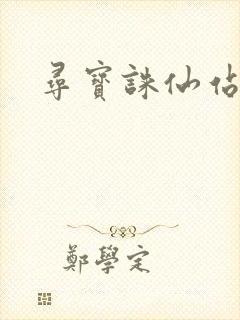 尋寶誅仙佔
鄭學定